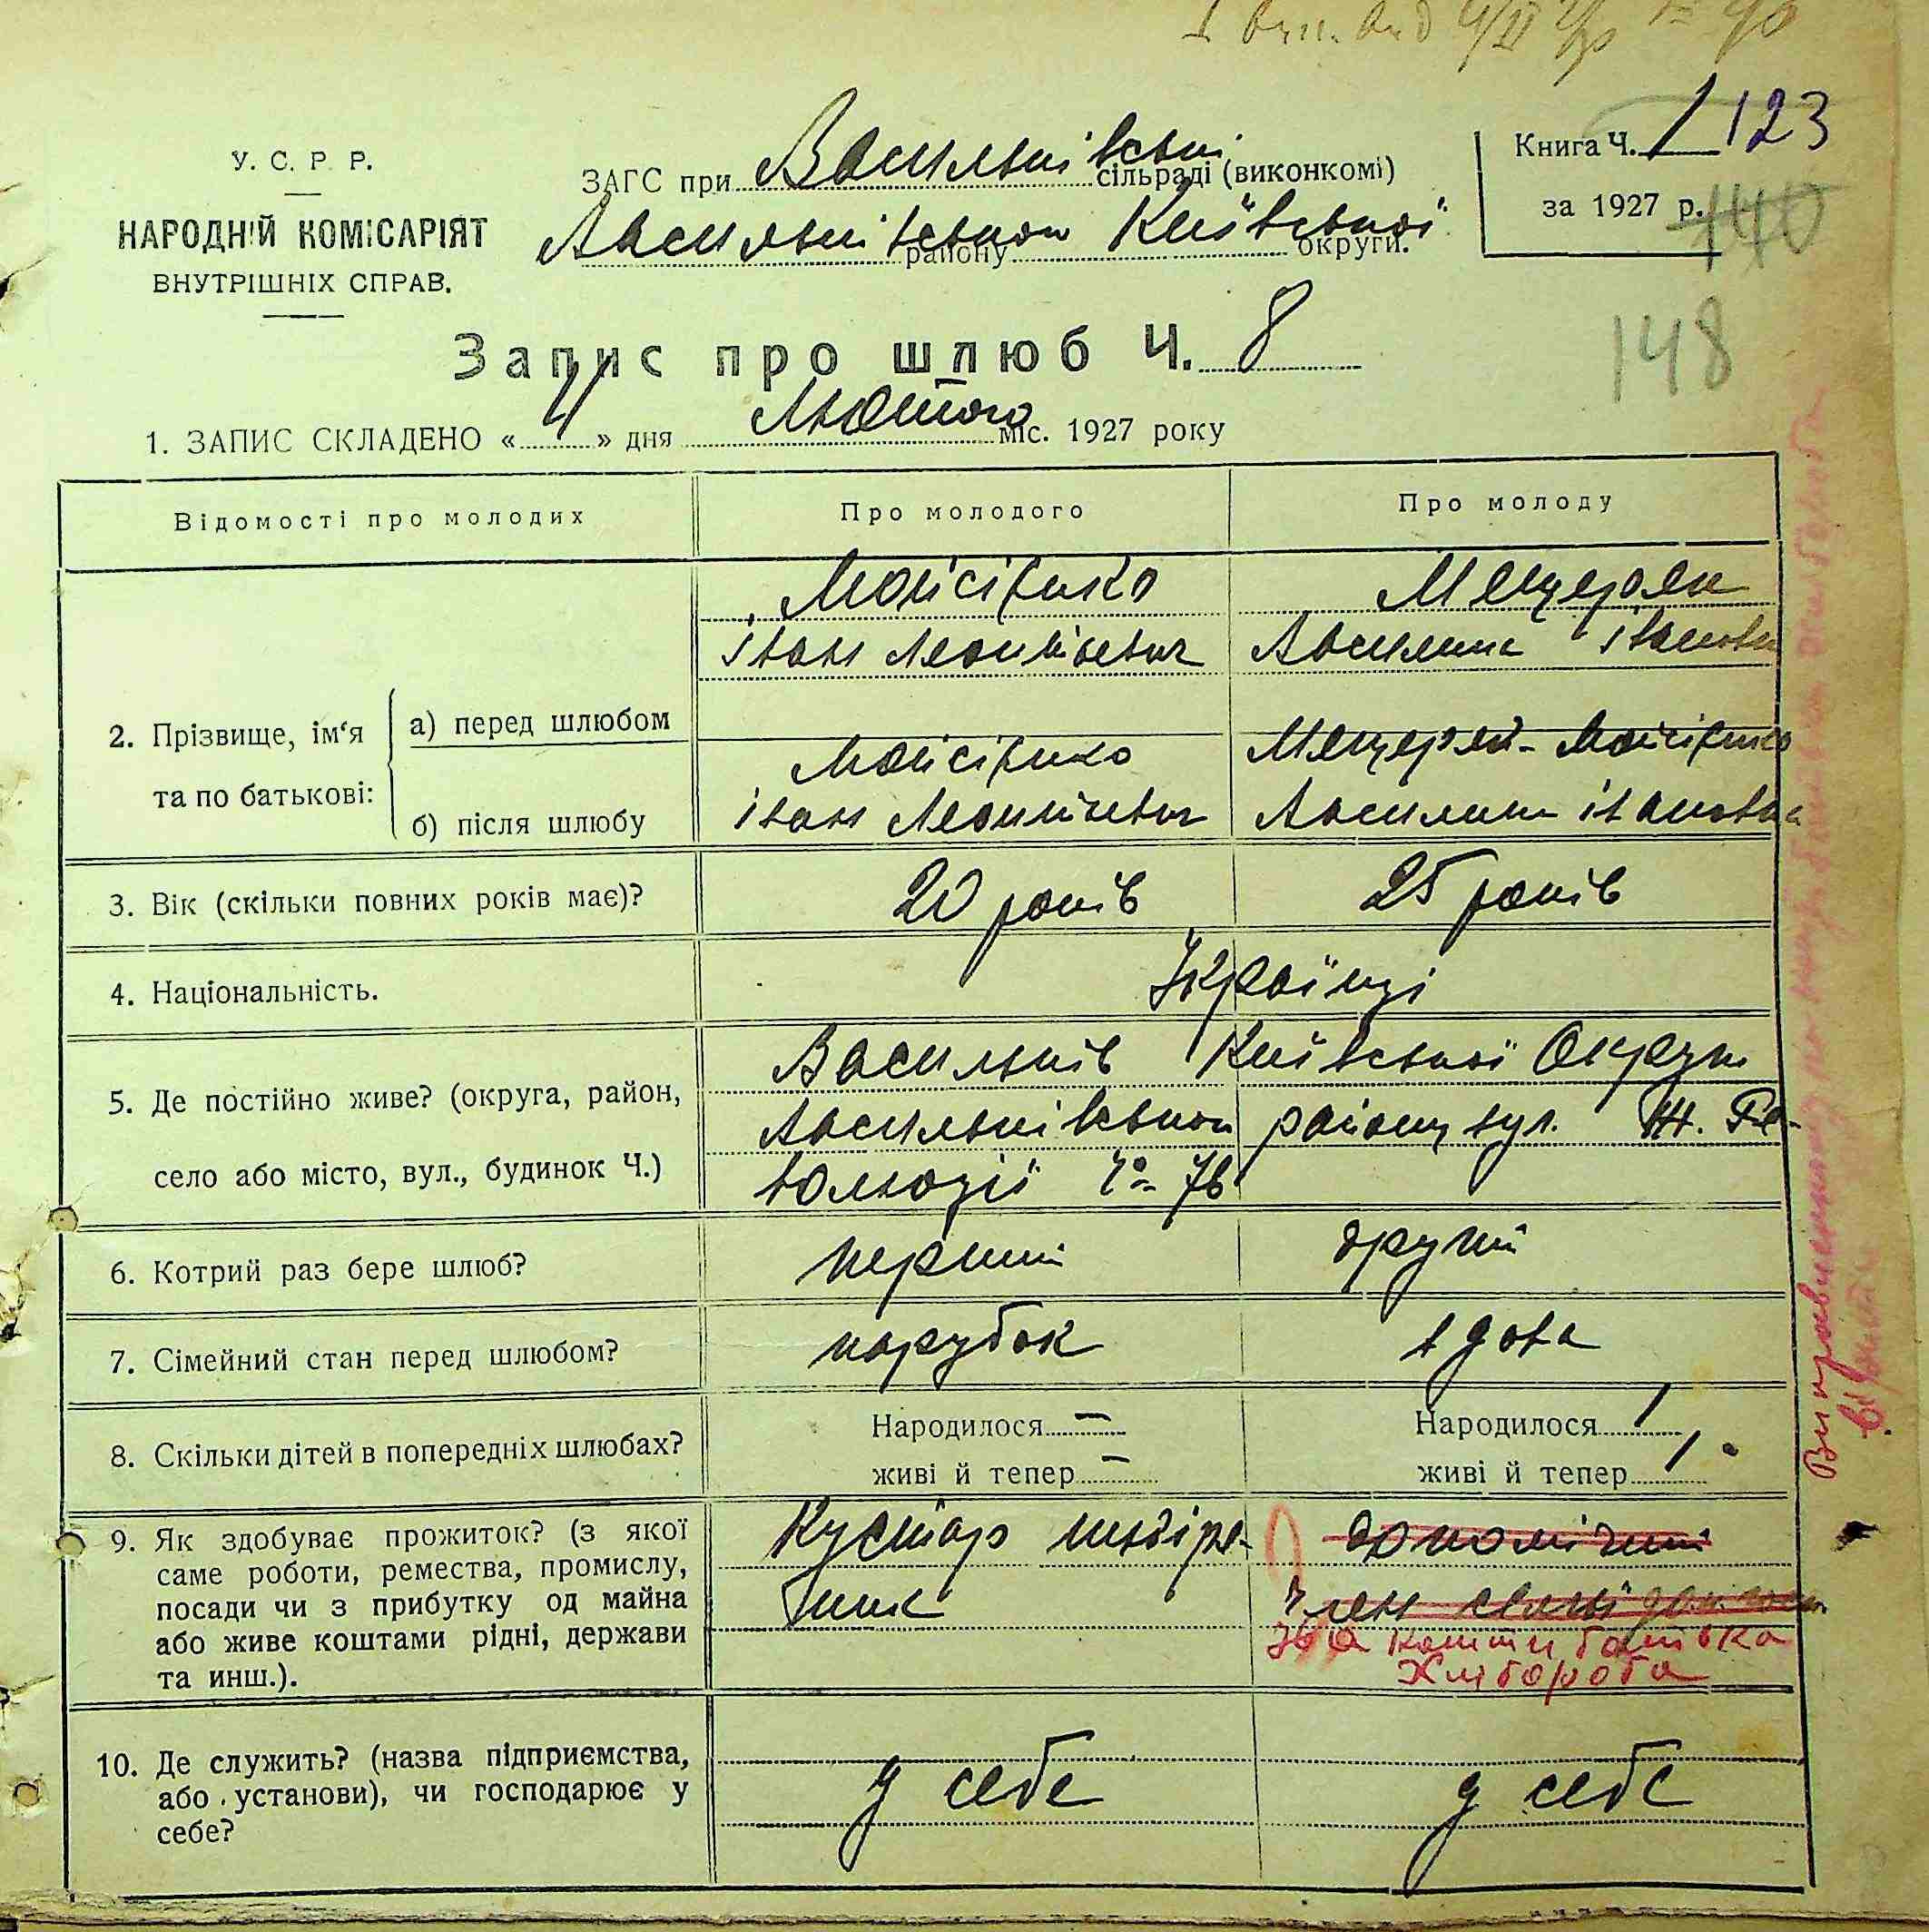 123
У. С. Р. Р.
НАРОДНІЙ КОМІСАРІЯТ
ВНУТРІШНІХ СПРАВ.
ЗАГС при Васильківські сільраді (виконкомі)
Васильківського району Київської округи.
Книга Ч. 1
за 1927 р.
140
148
Запис про шлюб Ч. 8
1. ЗАПИС СКЛАДЕНО « 4 » дня Лютого міс. 1927 року
Відомості про молодих
Про молодого
Про молоду
2. Прізвище, ім'я та по батькові:
а) перед шлюбом
Мойсієнко
іван
Мещеряк
Василина івановна
б) після шлюбу
Мойсієнко
іван
Мещеряк-Мойсієнко
Василина івановна
3. Вік (скільки повних років має)?
20 років
25 років
4. Національність.
Українці
5. Де постійно живе? (округа, район,
село або місто, вул., будинок Ч.)
Васильків Київської Округи
Васильківського району вул. Жт. Ре-
волюції № 76
6. Котрий раз бере шлюб?
перший
другий
7. Сімейний стан перед шлюбом?
парубок
вдова
8. Скільки дітей в попередніх шлюбах?
Народилося —
живі й тепер —
Народилося 1
живі й тепер 1
9. Як здобуває прожиток? (з якої
саме роботи, ремества, промислу,
посади чи з прибутку од майна
або живе коштами рідні, держави
та инш.).
Кустар шкіря-
ник
допомічний
член сем'ї
На кошти батька
Хлібороба
10. Де служить? (назва підприємства,
або установи), чи господарює у
себе?
у себе
у себе
Виправленному на кошти батька хлібороба
вірити